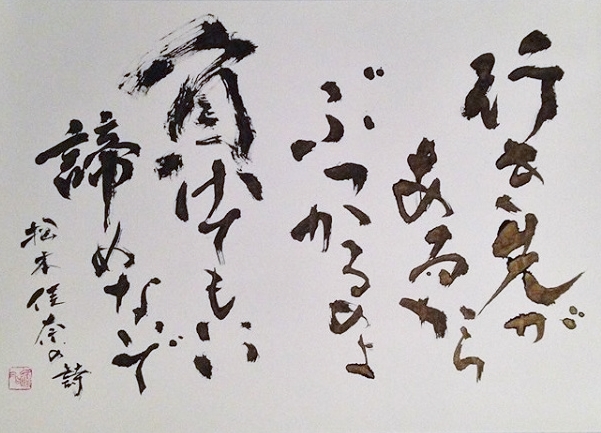 行き先が
あるから
ぶつかるのよ
負けてもいい
諦めないで
松本佳奈の詩